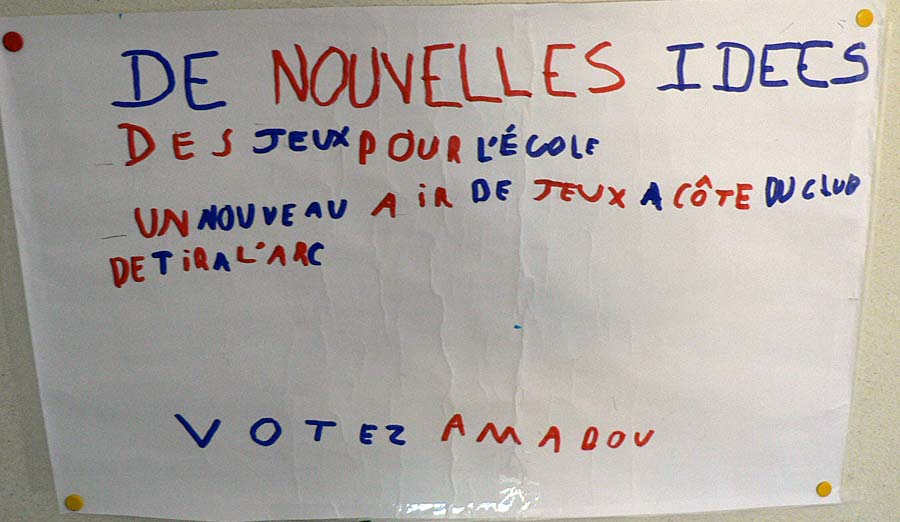 DE NOUVELLES IDEES
_ DES JEUX POUR L'ÉCOLE
_ UN NOUVEAU AIR DE JEUX A CÔTE DU CLUB
DE TIR A L'ARC
VOTEZ AMADOU